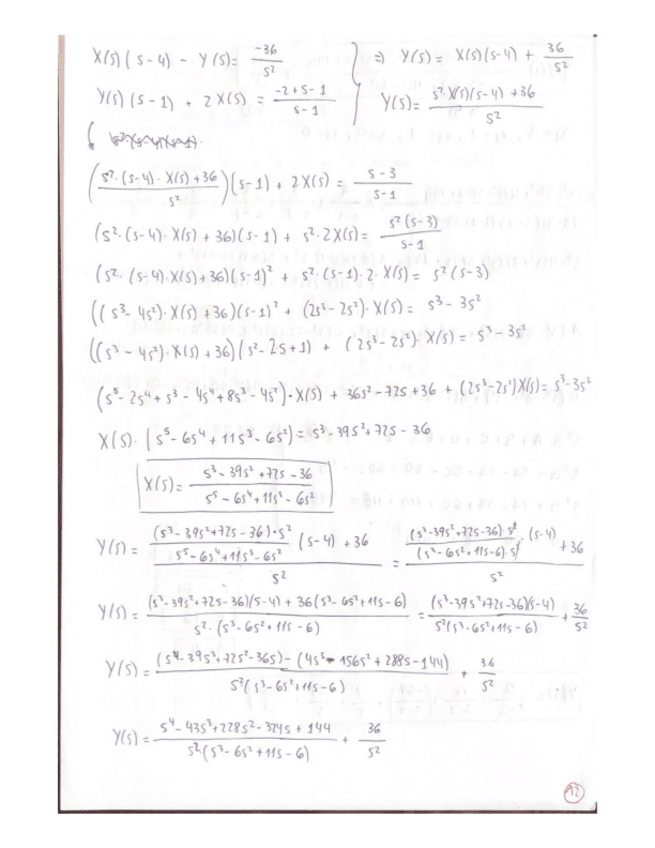 X(s)(s-4) - Y(s) = -36/s² } ⇒ Y(s) = X(s)(s-4) + 36/s²
Y(s)(s-1) + 2X(s) = (-2+s-1)/(s-1) } Y(s) = (s²·X(s)(s-4) + 36)/s²
((s²·(s-4)·X(s)+36)/s²)(s-1) + 2X(s) = (s-3)/(s-1)
(s²·(s-4)·X(s) + 36)(s-1) + s²·2X(s) = s²(s-3)/(s-1)
(s²·(s-4)·X(s)+36)(s-1)² + s²·(s-1)·2·X(s) = s²(s-3)
((s³-4s²)·X(s)+36)(s-1)² + (2s³-2s²)·X(s) = s³-3s²
((s³-4s²)·X(s)+36)(s²-2s+1) + (2s³-2s²)·X(s) = s³-3s²
(s⁵-2s⁴+s³-4s⁴+8s³-4s²)·X(s) + 36s²-72s+36 + (2s³-2s²)X(s) = s³-3s²
X(s)·(s⁵-6s⁴+11s³-6s²) = s³-39s²+72s-36
X(s) = (s³-39s²+72s-36)/(s⁵-6s⁴+11s³-6s²)
Y(s) = (((s³-39s²+72s-36)·s²)/(s⁵-6s⁴+11s³-6s²) (s-4) + 36)/s² = (((s³-39s²+72s-36)·s²)/((s³-6s²+11s-6)·s²)·(s-4) + 36)/s²
Y(s) = ((s³-39s²+72s-36)(s-4) + 36(s³-6s²+11s-6))/(s²·(s³-6s²+11s-6)) = ((s³-39s²+72s-36)(s-4))/(s²(s³-6s²+11s-6)) + 36/s²
Y(s) = ((s⁴-39s³+72s²-36s)-(4s³-156s²+288s-144))/(s²(s³-6s²+11s-6)) + 36/s²
Y(s) = (s⁴-43s³+228s²-324s+144)/(s²·(s³-6s²+11s-6)) + 36/s²
12